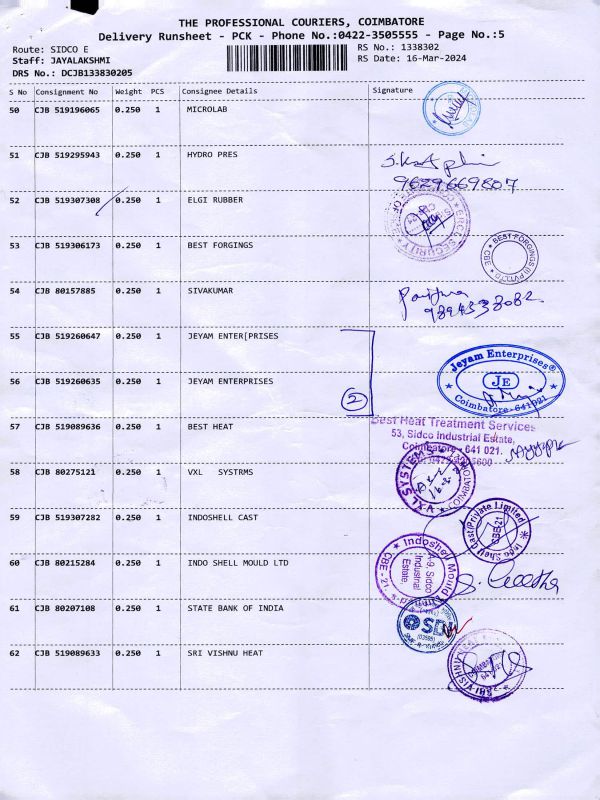 THE PROFESSIONAL COURIERS, COIMBATORE
Delivery Runsheet - PCK - Phone No.:0422-3505555 - Page No.:5
Route: SIDCO E
Staff: JAYALAKSHMI
DRS No.: DCJB133830205
RS No.: 1338302
RS Date: 16-Mar-2024
S No Consignment No Weight PCS Consignee Details Signature
50 CJB 519196065 0.250 1 MICROLAB
51 CJB 519295943 0.250 1 HYDRO PRES
9629669807
52 CJB 519307308 0.250 1 ELGI RUBBER
SECURITY
53 CJB 519306173 0.250 1 BEST FORGINGS
BEST FORGINGS (I) PVT LTD CBE
54 CJB 80157885 0.250 1 SIVAKUMAR
9894538082
55 CJB 519260647 0.250 1 JEYAM ENTER[PRISES
56 CJB 519260635 0.250 1 JEYAM ENTERPRISES
2
Jeyam Enterprises®
JE
Coimbatore-641 021
57 CJB 519089636 0.250 1 BEST HEAT
Best Heat Treatment Services
53, Sidco Industrial Estate,
Coimbatore - 641 021.
58 CJB 80275121 0.250 1 VXL SYSTRMS
VXL SYSTEMS COIMBATORE
59 CJB 519307282 0.250 1 INDOSHELL CAST
Indo Shell Cast (Private Limited
SBE-21
60 CJB 80215284 0.250 1 INDO SHELL MOULD LTD
Indoshell Mould Limited
A-9, Sidco
Industrial
Estate,
CBE - 21
61 CJB 80207108 0.250 1 STATE BANK OF INDIA
62 CJB 519089633 0.250 1 SRI VISHNU HEAT
SRI VISHNU HEAT